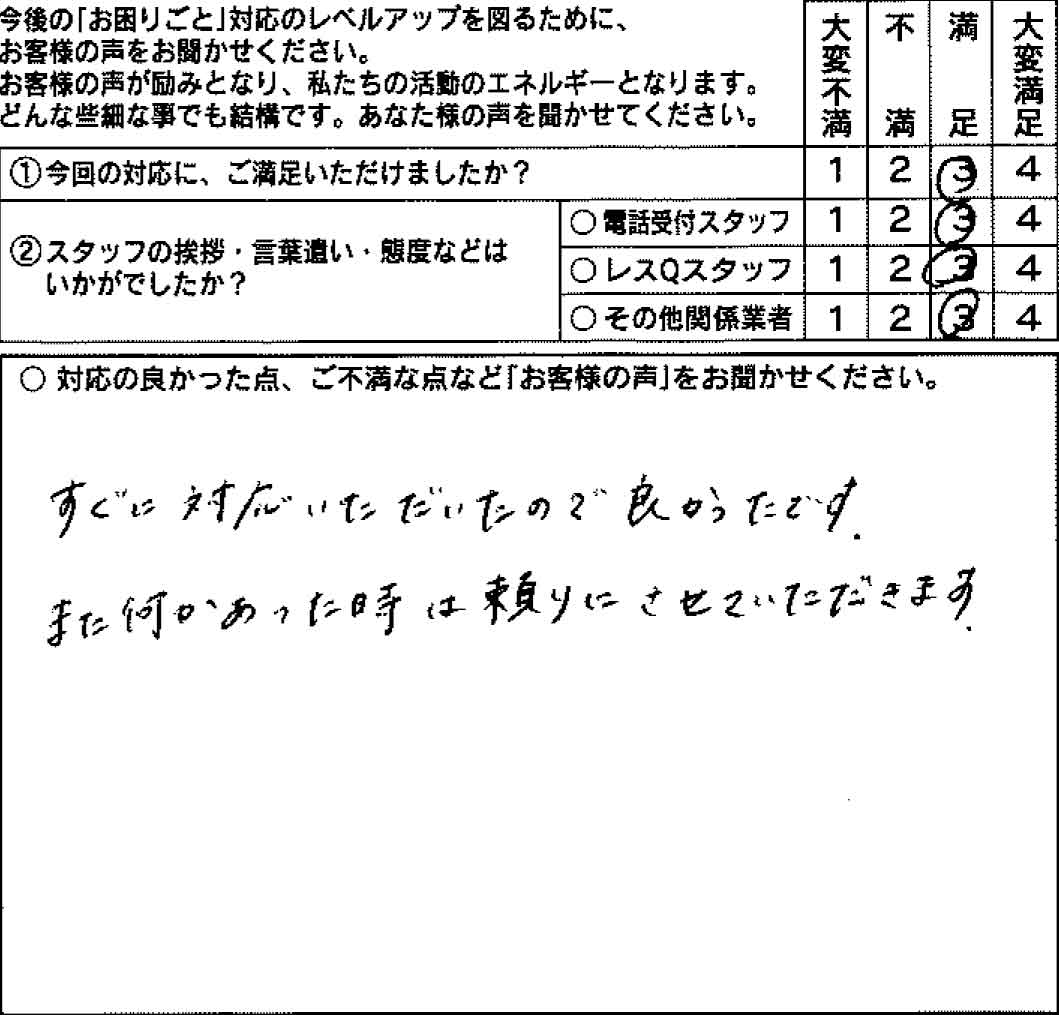 今後の「お困りごと」対応のレベルアップを図るために、
お客様の声をお聞かせください。
お客様の声が励みとなり、私たちの活動のエネルギーとなります。
どんな些細な事でも結構です。あなた様の声を聞かせてください。
大変不満 不満 満足 大変満足
①今回の対応に、ご満足いただけましたか? 1 2 3 4
②スタッフの挨拶・言葉遣い・態度などは
いかがでしたか?
○ 電話受付スタッフ 1 2 3 4
○ レスQスタッフ 1 2 3 4
○ その他関係業者 1 2 3 4
○ 対応の良かった点、ご不満な点など「お客様の声」をお聞かせください。
すぐに対応いただいたので良かったです.
また何かあった時は頼りにさせていただきます.